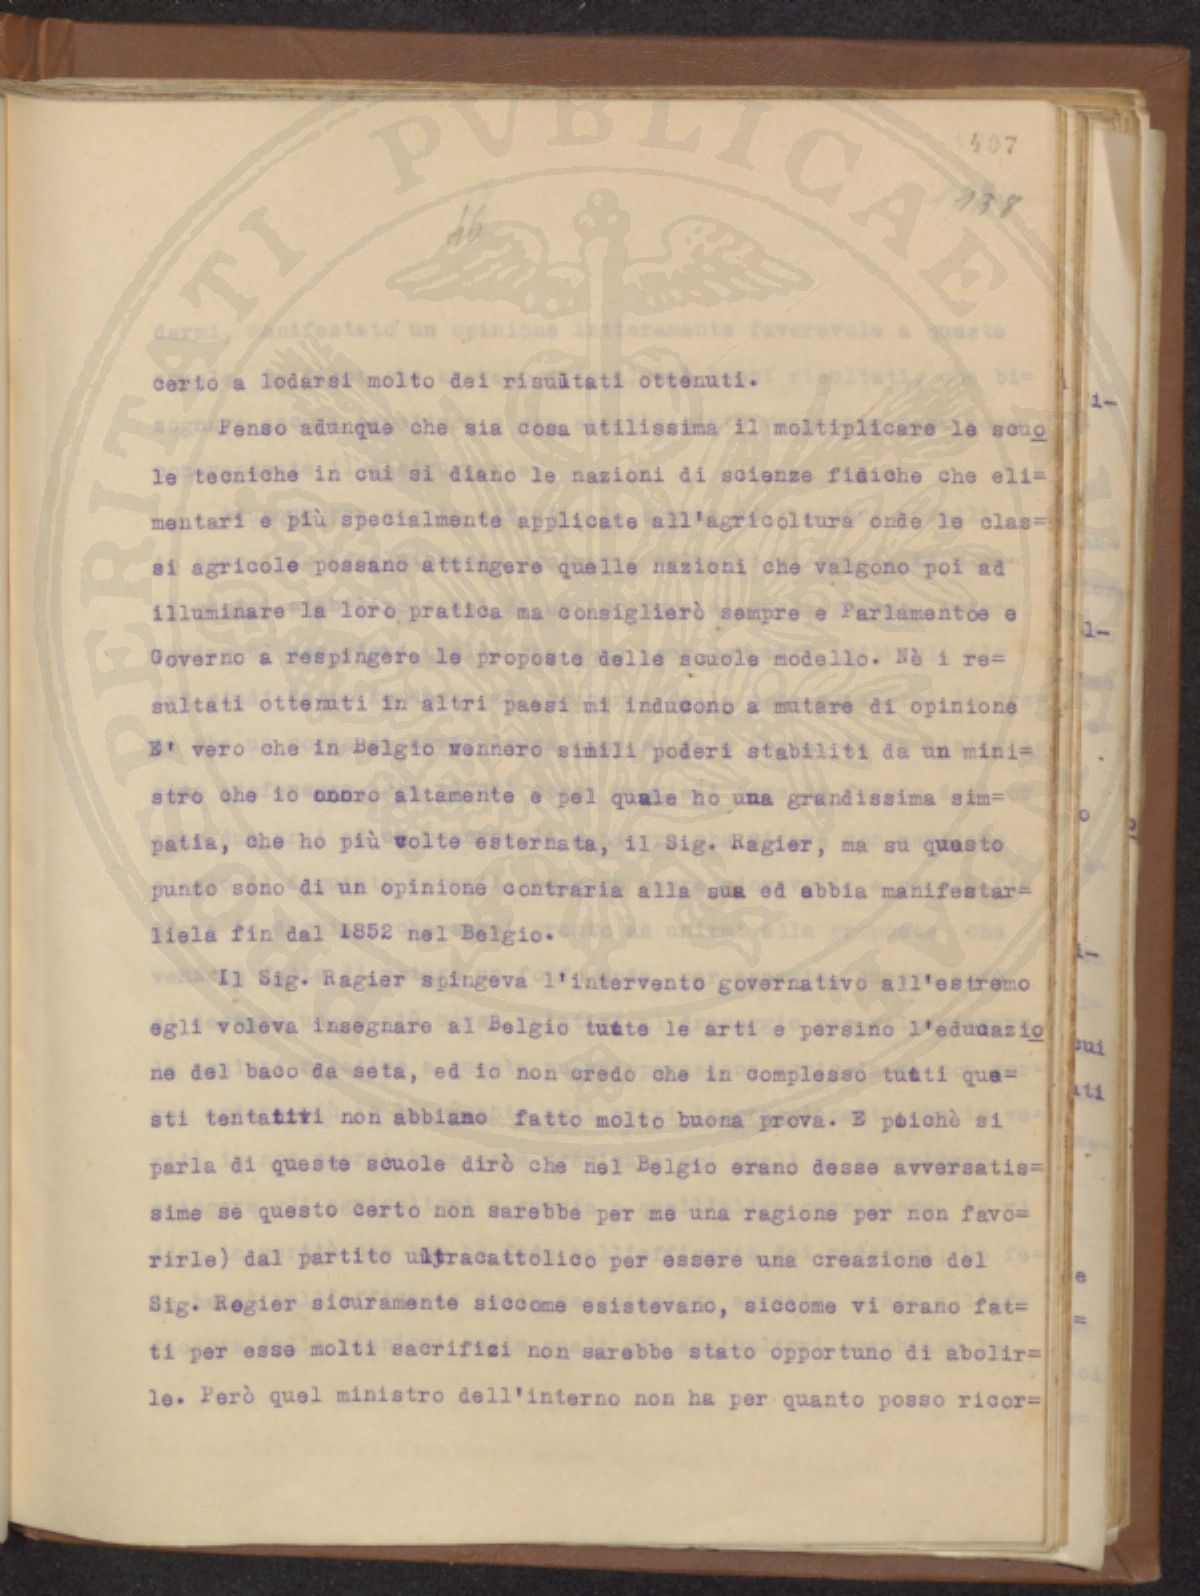 407
138
46
certo a lodarsi molto dei risultati ottenuti.
Penso adunque che sia cosa utilissima il moltiplicare le scuo
le tecniche in cui si diano le nazioni di scienze fidiche che eli=
mentari e più specialmente applicate all'agricoltura onde le clas=
si agricole possano attingere quelle nazioni che valgono poi ad
illuminare la loro pratica ma consiglierò sempre e Parlamentoe e
Governo a respingere le proposte delle scuole modello. Nè i re=
sultati ottenuti in altri paesi mi inducono a mutare di opinione
E' vero che in Belgio vennero simili poderi stabiliti da un mini=
stro che io onoro altamente e pel quale ho una grandissima sim=
patia, che ho più volte esternata, il Sig. Ragier, ma su questo
punto sono di un opinione contraria alla sua ed abbia manifestar=
liela fin dal 1852 nel Belgio.
Il Sig. Ragier spingeva l'intervento governativo all'estremo
egli voleva insegnare al Belgio tutte le arti e persino l'educazio
ne del baco da seta, ed io non credo che in complesso tutti que=
sti tentativi non abbiano fatto molto buona prova. E poichè si
parla di queste scuole dirò che nel Belgio erano desse avversatis=
sime se questo certo non sarebbe per me una ragione per non favo=
rirle) dal partito ultracattolico per essere una creazione del
Sig. Regier sicuramente siccome esistevano, siccome vi erano fat=
ti per esse molti sacrifizi non sarebbe stato opportuno di abolir=
le. Però quel ministro dell'interno non ha per quanto posso ricor=
PERITATI PVBLICAE